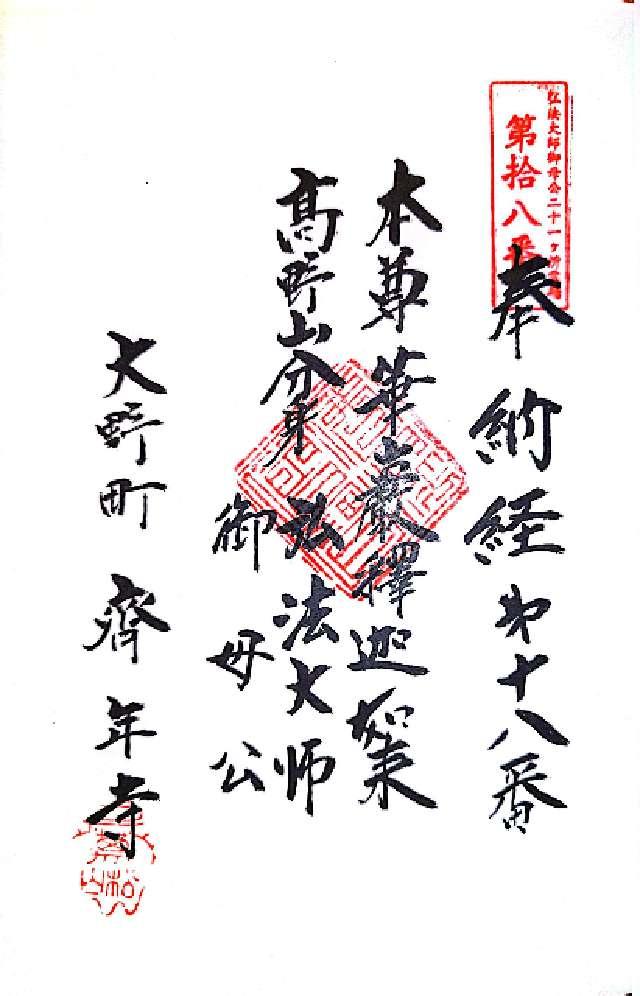 弘法大師御母公二十一ヶ所霊場
第拾八番
奉納経 第十八番
本尊華嚴釋迦如来
高野山分身 弘法大师
御母公
大野町 齊年寺